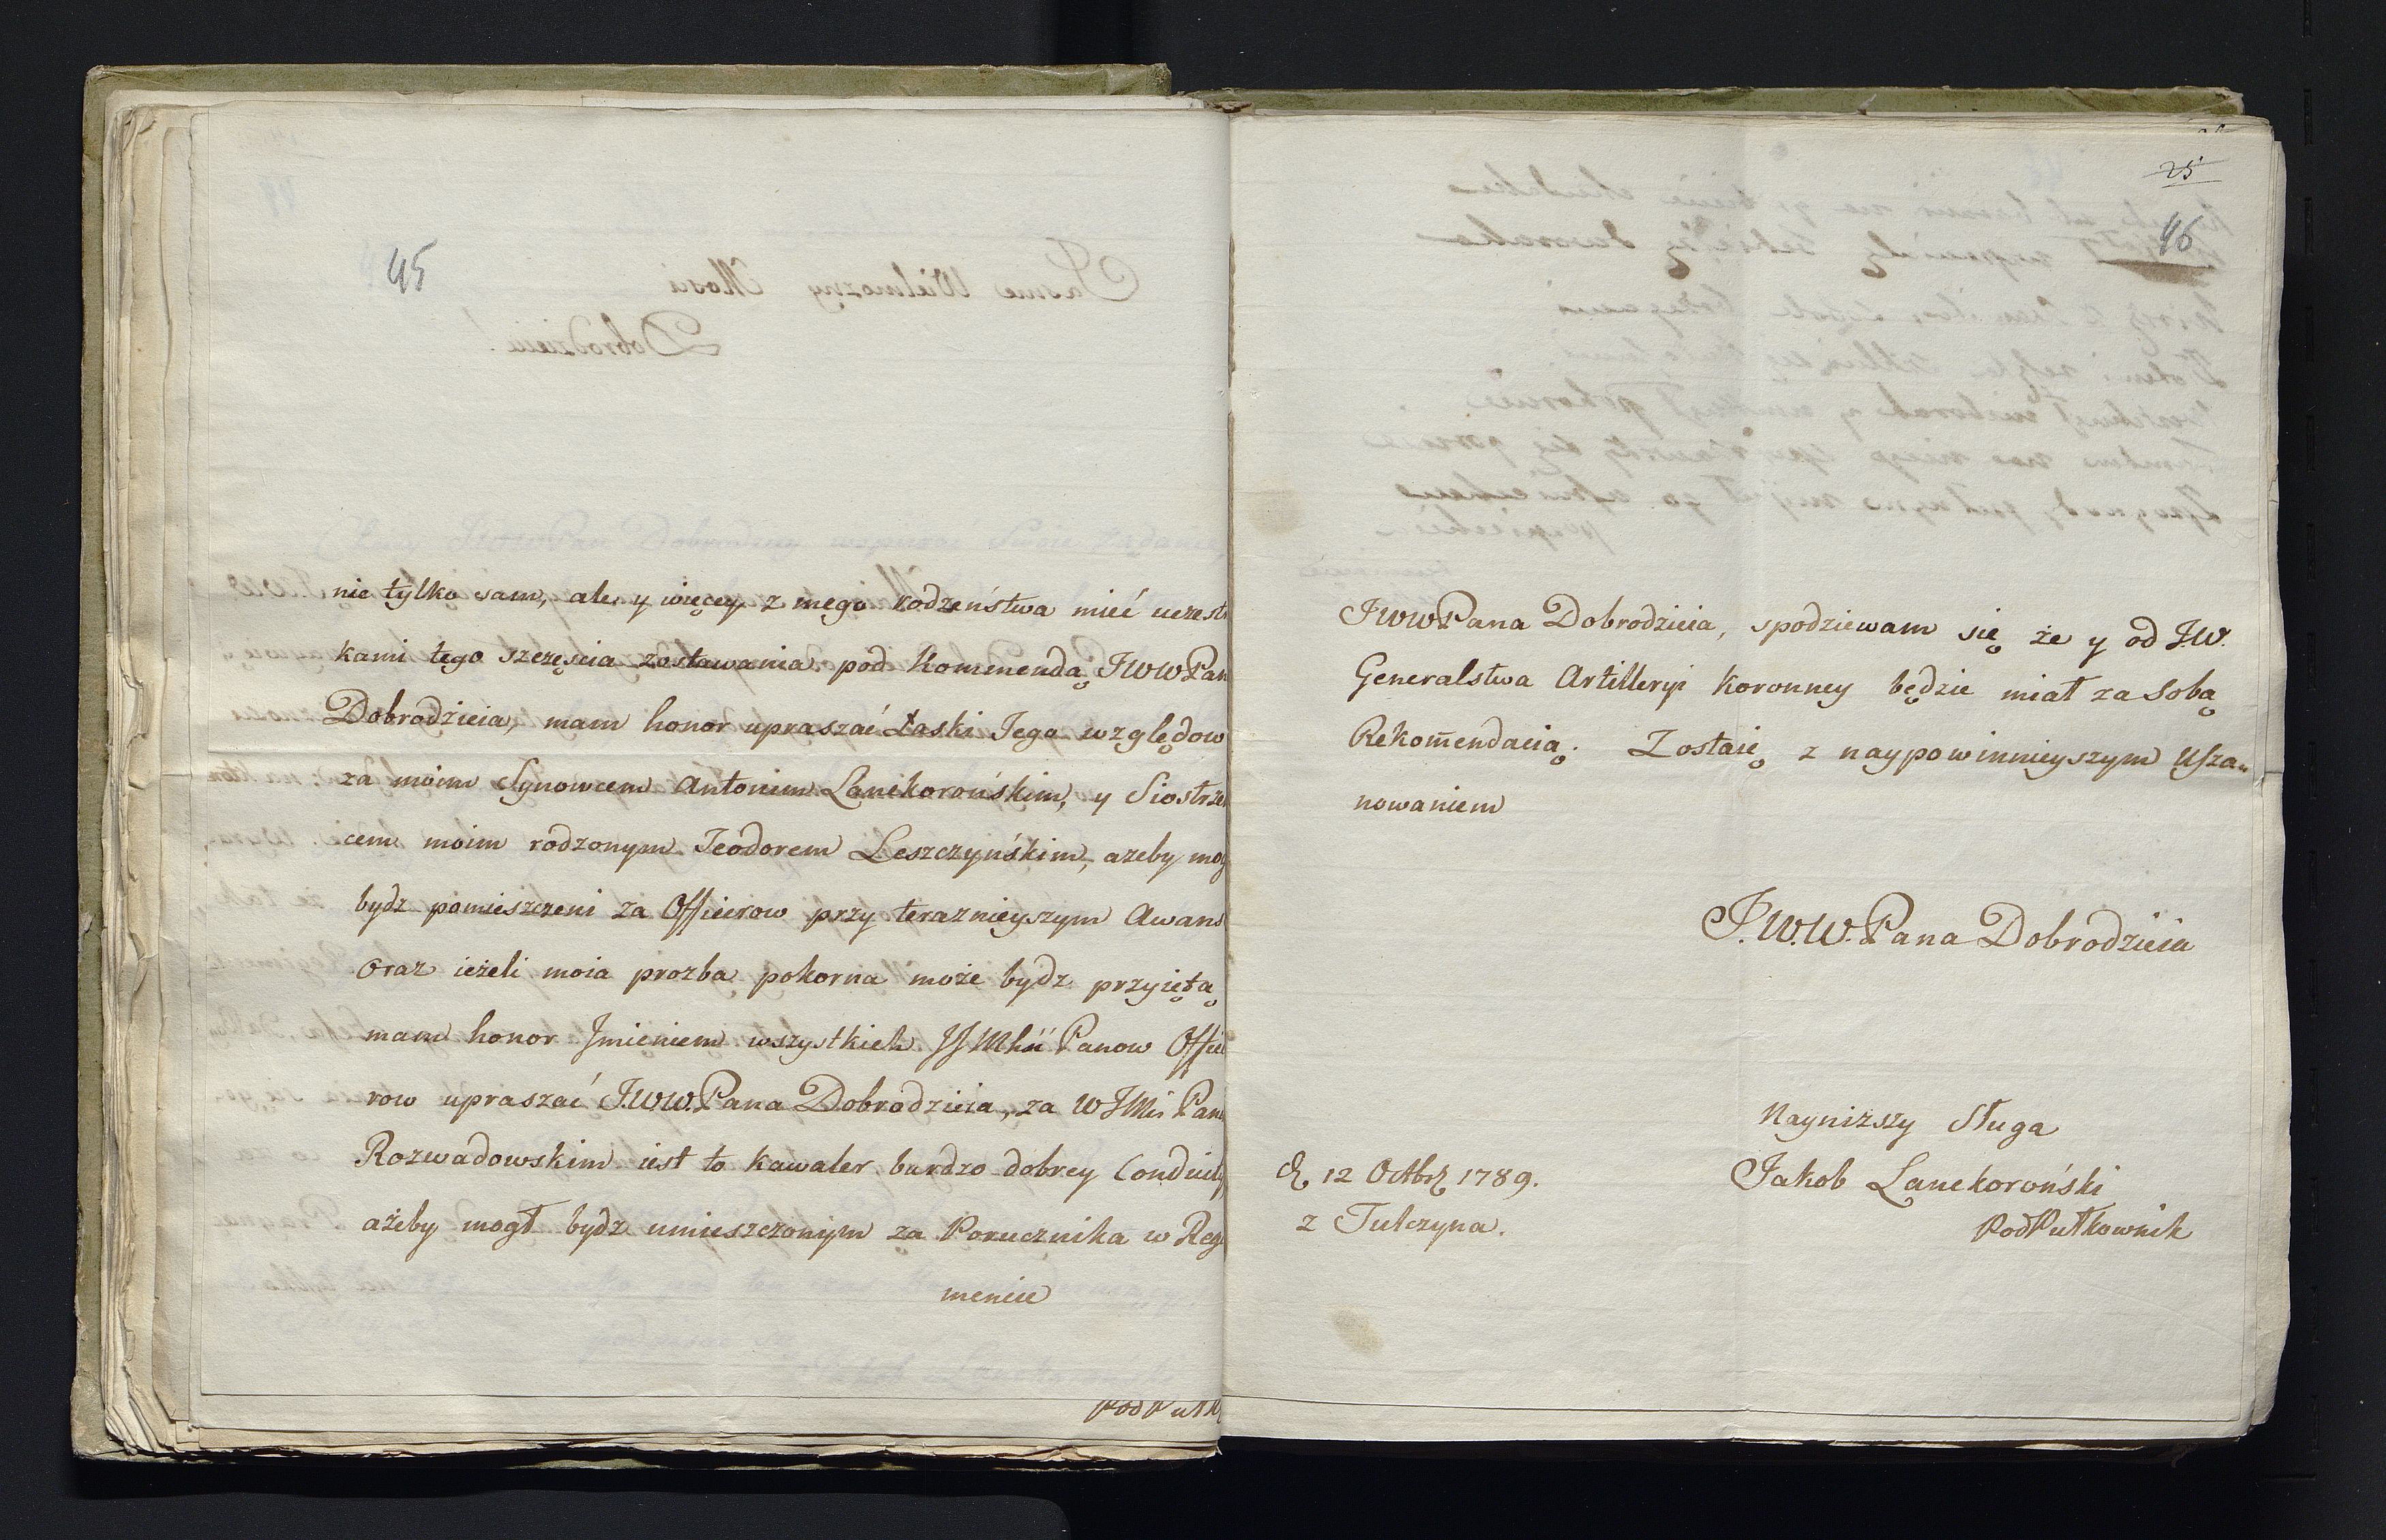 45
nie tylko sam, ale y więcey z mego Rodzeństwa mieć uczest
kami tego szczęścia zostawania pod Kommendą JWWPan
Dobrodzieia, mam honor upraszać Łaski Jego względow
za moim Synowcem Antonim Lanckorońskim, y Siostrze
cem moim rodzonym Teodorem Leszczyńskim, ażeby mog
bydz pomieszczeni za Officerow przy teraznieyszym Awans
oraz ieżeli moia prozba pokorna może bydz przyiętą
mam honor Jmieniem wszystkich JJMhii Panow Offic
row upraszać J.W.W.Pana Dobrodzieia, za WJMci Pan
Rozwadowskim iest to kawaler bardzo dobrey Conduity
ażeby mogł bydz umieszczonym za Porucznika w Regi
mencie
PodPułk
25
46
JWWPana Dobrodzieia, spodziewam się że y od J.W.
Generalstwa Artilleryi Koronney będzie miał za Sobą
Rekom̄endacią. Zostaię z naypowinnieyszym Usza„
nowaniem
J.W.W.Pana Dobrodzieia
Nayniższy Sługa
d. 12 Octbr 1789.
Jakob Lanckoroński
z Tulczyna.
PodPułkownik